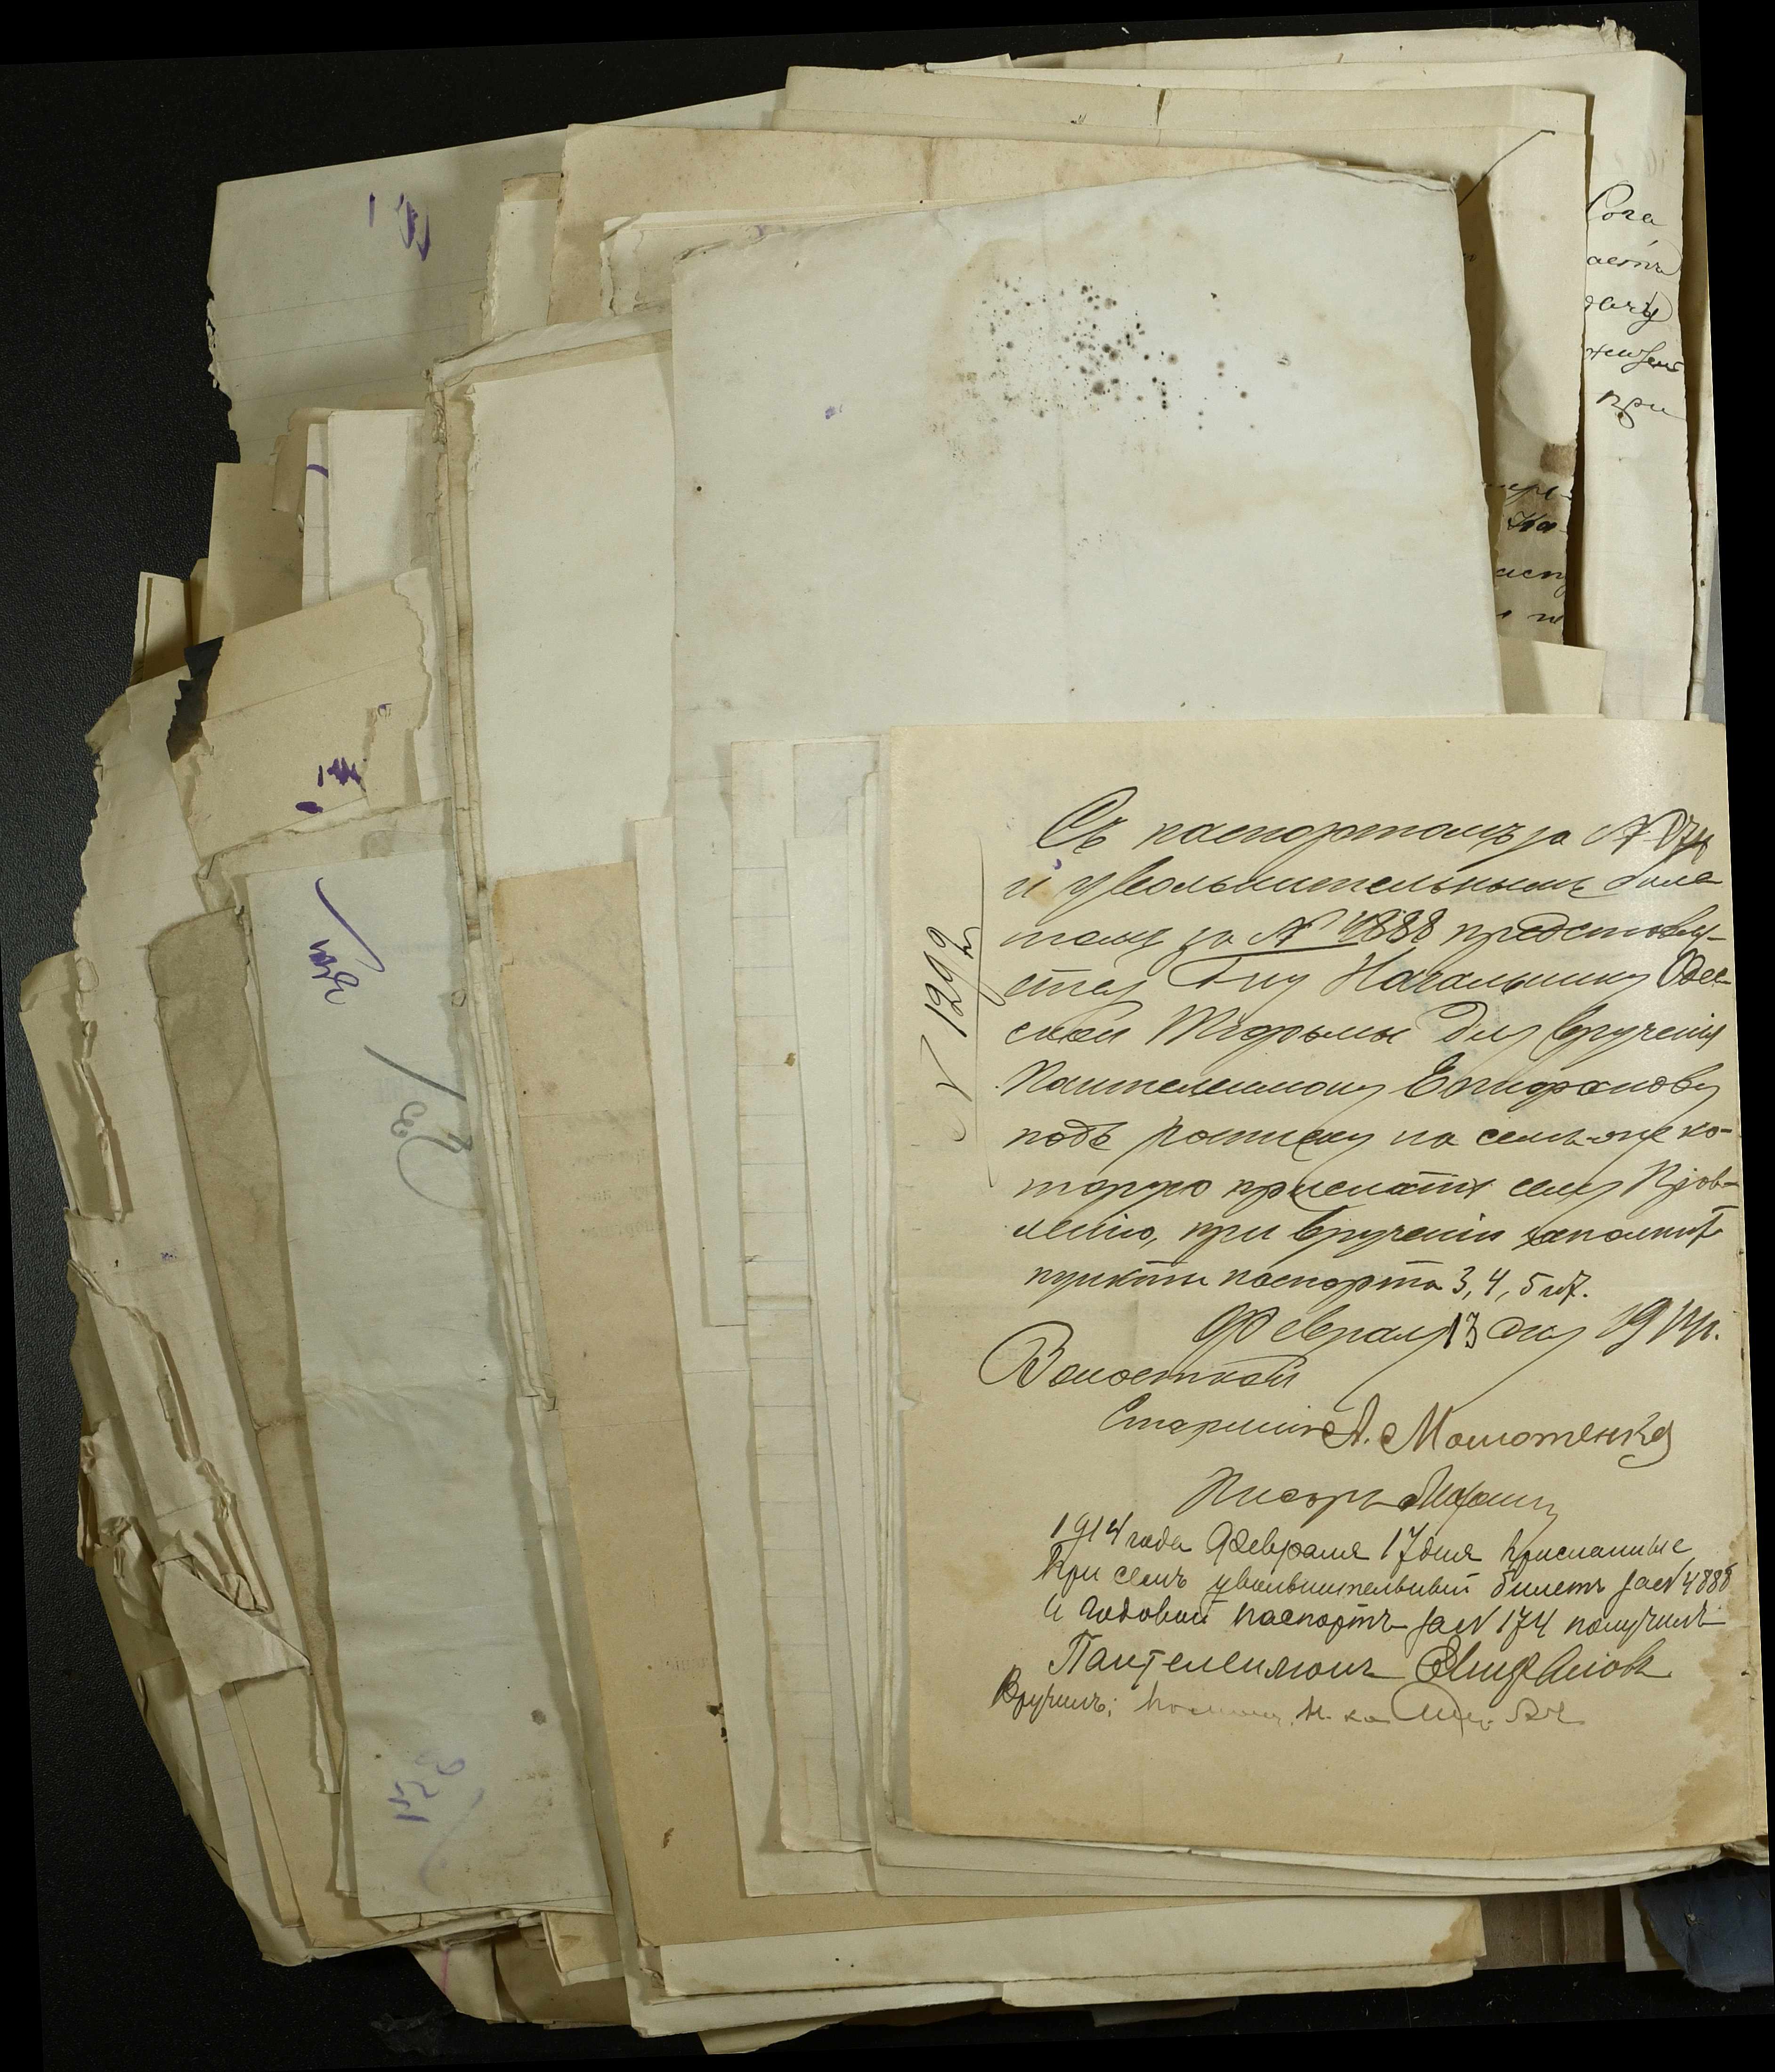 Съ паспортомъ за №174
и увольнительнымъ биле-
томъ за № 4888 представля-
ется Г-ну Начальнику Одес-
ской Тюрьмы для врученія
Пантелеимону Епифанову
подъ росписку на семъ-же ко-
торую прислать сему Прав-
ленію, при врученіи заполнить
пункты паспорта 3, 4, 5 и 7.
Февраля 13 дня 1914 г.
Волостной
Старшина А.
Писарь
1914 года Февраля 17 дня присланные
при семъ увольнительный билетъ за № 4888
и годовой паспортъ за № 174 получилъ
Пантелеимонъ Епифановъ
Вручилъ:
№ 1292
Сога
при